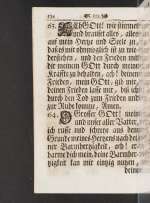 63. Ach GOtt! wie stürmet
und brauset alles, alles
auf mein Hertz und Seele zu,
daß es mir ohnmöglich ist zu wie-
derstehen, und den Frieden mit
dir meinem GOtt durch meine
Kräffte zu behalten, ach! deinen
Frieden, mein GOtt, gib mir,
deinen Frieden lasse mir, biß ich
durch den Tod zum Frieden und
zur Ruhe komme, Amen.
64. O Grosser GOtt! mein
und unser aller Vatter,
ich ruffe und schreye aus dem
Grunde meines Hertzens nach dei-
ner Barmhertzigkeit, ach! er-
barme dich mein, deine Barmher-
tzigkeit kan mir einzig nutzen,
deine